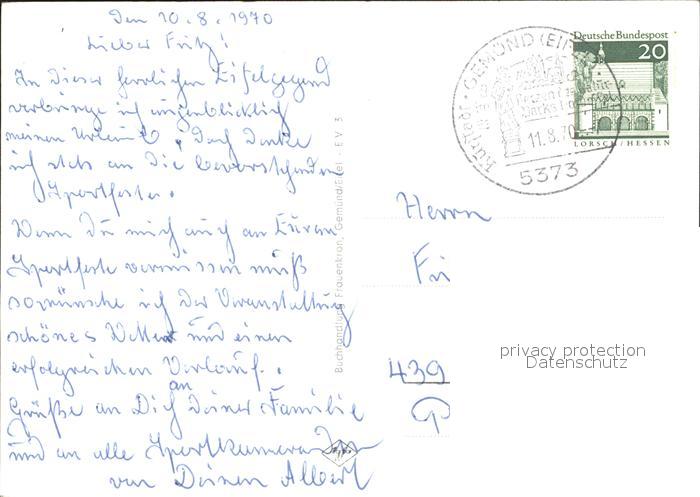 Den 10.8.1970
Lieber Fritz!
In dieser herrlichen Eifelgegend
verbringe ich augenblicklich
meinen Urlaub, doch denke
ich stets an die bevorstehenden
Sportfeste.
Wenn Du mich auch an Euren
Sportfeste vermissen muß
so wünsche ich der Veranstaltung
schönes Wetter und einen
erfolgreichen Verlauf.
an
Grüße an Dich Deiner Familie
und an alle Sportkameraden
von Deinem Albert
Buchhandlung Frauenkron, Gemünd/Eifel - EV 3
GEMÜND (EIFEL)
11.8.70
5373
Deutsche Bundespost
20
LORSCH / HESSEN
Herrn
Fri
439
P
privacy protection
Datenschutz